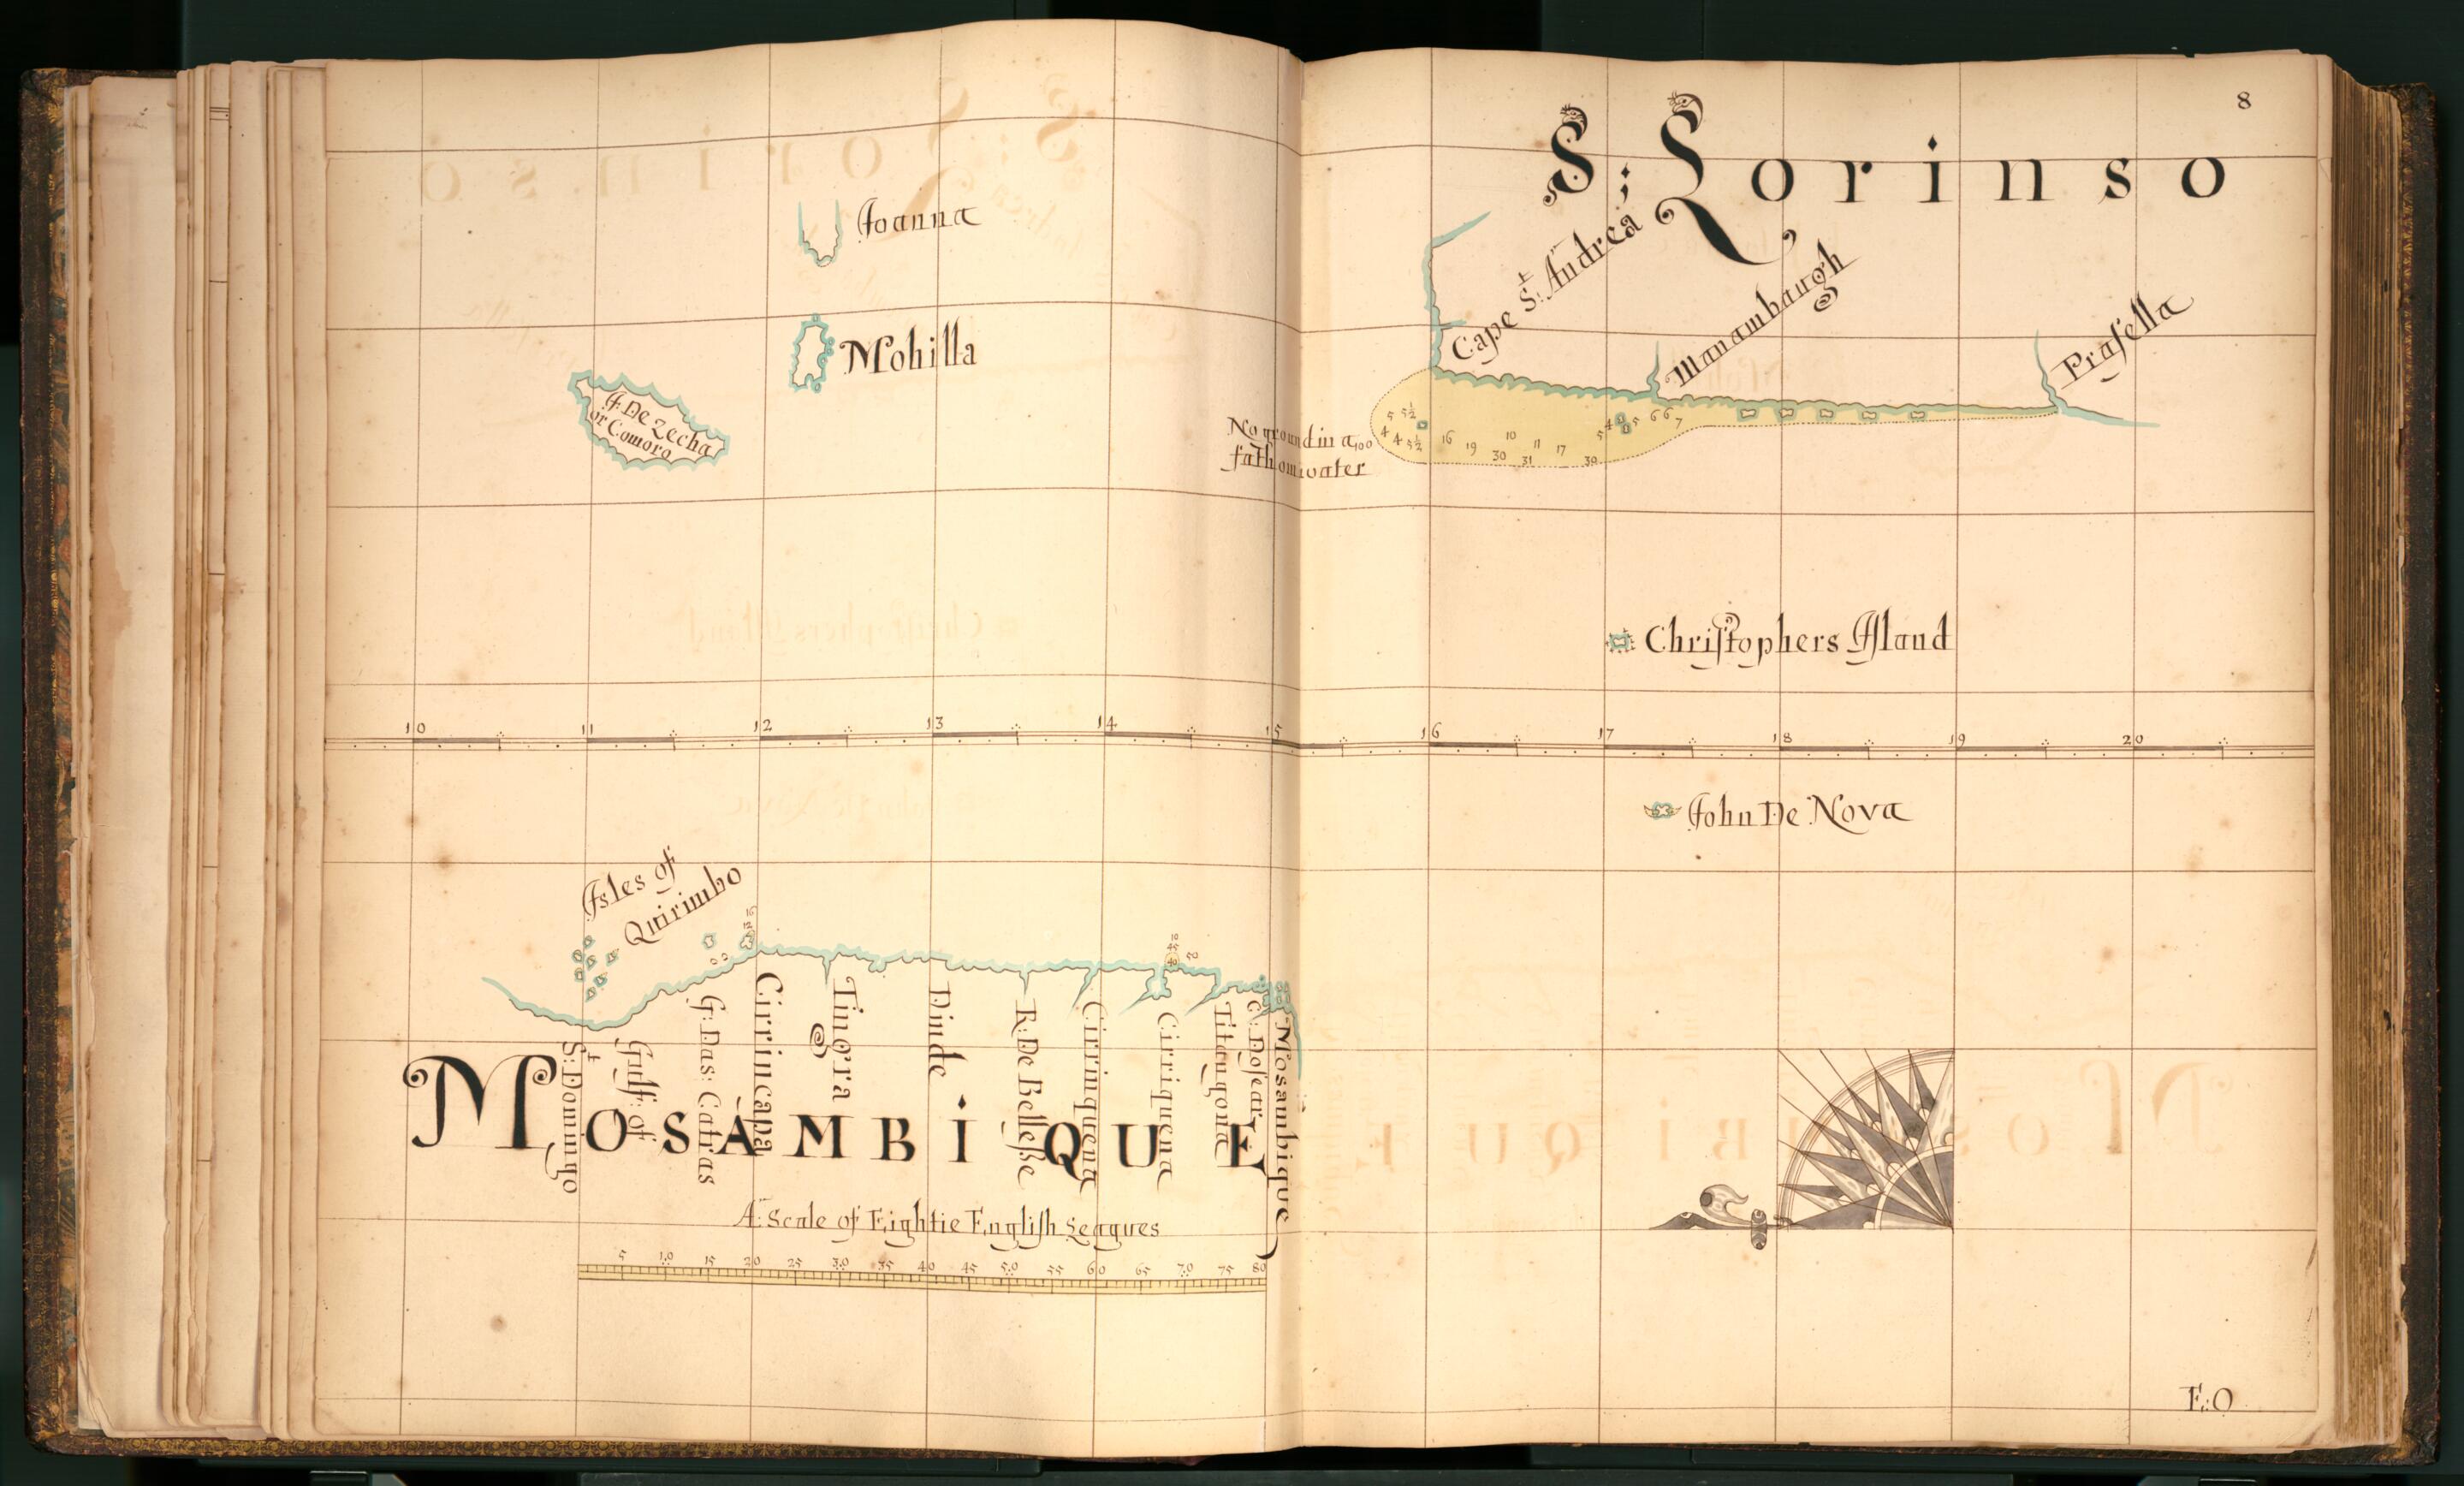 8
S: Lorinso
Joanna
Mohilla
I: De Zecha
or Comoro
Cape St: Andrea
Manambaugh
Prasella
No ground in a 100
fathom water
5 5½
4 4 5½
16 19 10 11 17
30 31 30
5 4 5 6 6 7
Christophers Island
10 11 12 13 14 15 16 17 18 19 20
John De Nova
Isles of
Quirimbo
16
12
10
45
40
50
St: Domingo
Gulf: of
G: Das: Catras
Cirrincapa
Tingra
Dinde
R: De Belleße
Cirrinquena
Cirriquena
Titangona
C: Dosear
Mosambique
MOSAMBIQUE
A: Scale of Eightie English Leagues
5 10 15 20 25 30 35 40 45 50 55 60 65 70 75 80
F:O